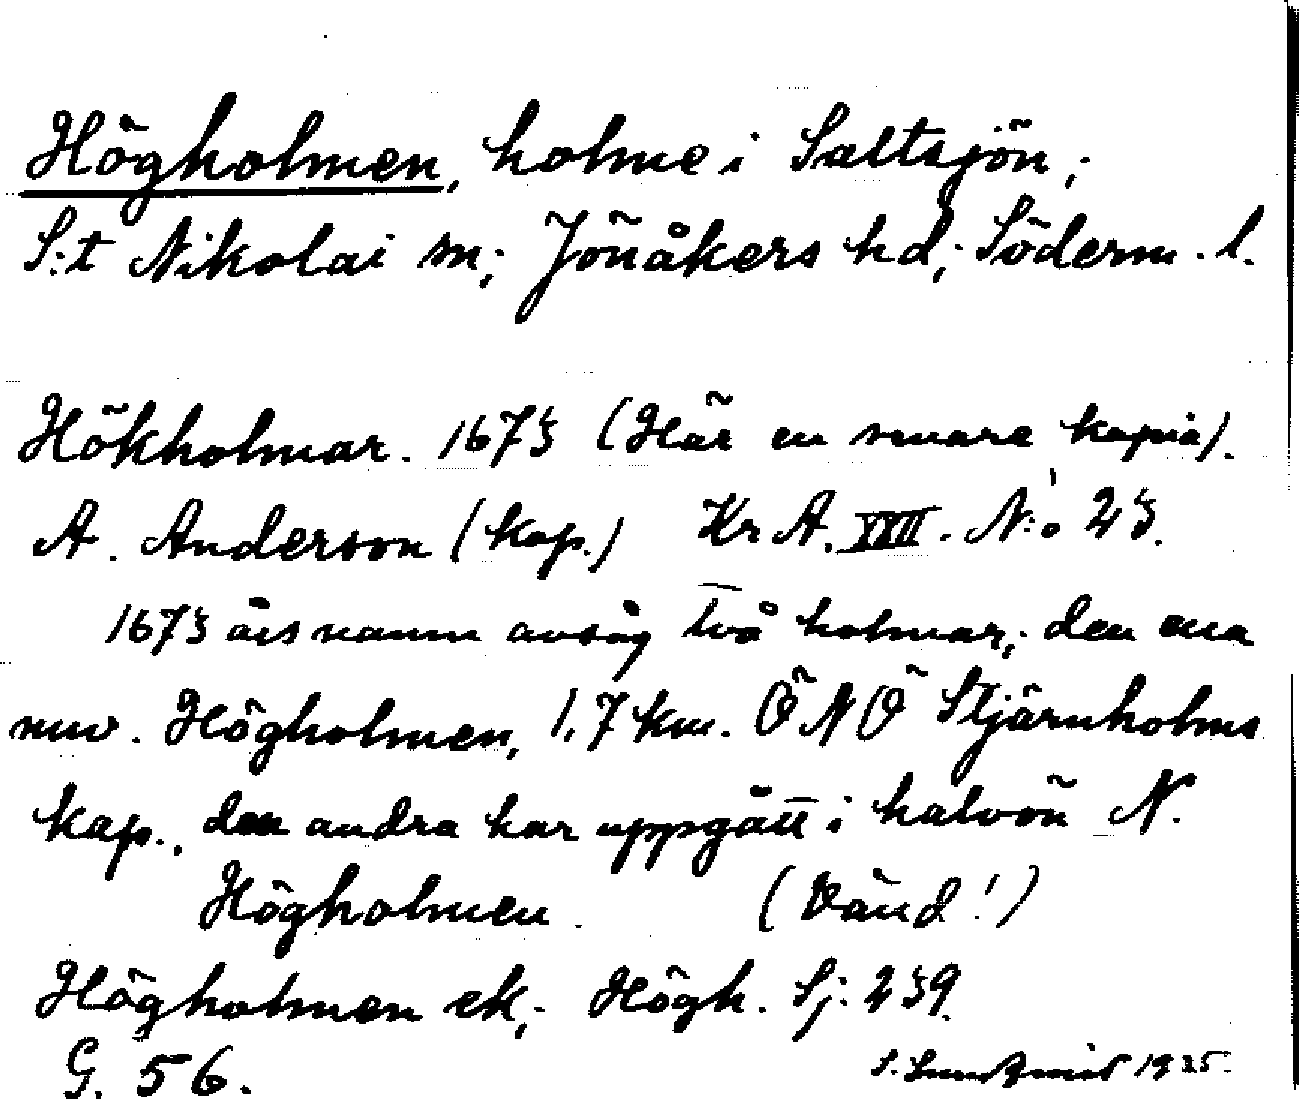 Högholmen, holme i Saltsjön;
S:t Nikolai sn; Jönåkers hd; Söderm. l.
Hökholmar. 1673 (Här en senare kopia).
A. Anderson (kop.) Kr A. XXII. N:o 23.
1673 års namn avsåg två holmar; den ena
nuv. Högholmen, 1,7 km. ÖNÖ Stjärnholms
kap., den andra har uppgått i halvön N.
Högholmen (Vänd!)
Högholmen ek; Högh. Sj: 239.
G. 56.
S. 1935.